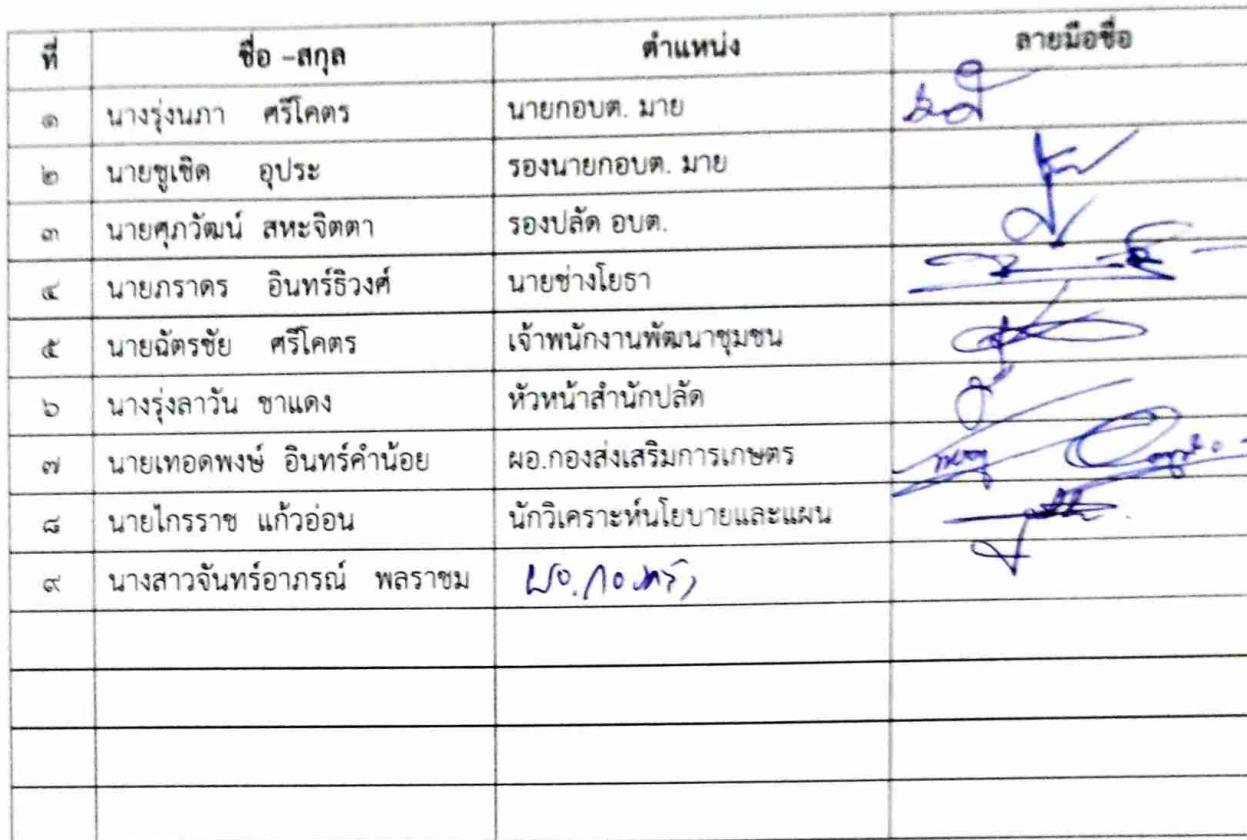 ที่ ชื่อ -สกุล ตำแหน่ง ลายมือชื่อ
๑ นางรุ่งนภา ศรีโคตร นายกอบต. มาย
๒ นายชูเชิด อุประ รองนายกอบต. มาย
๓ นายศุภวัฒน์ สหะจิตตา รองปลัด อบต.
๔ นายภราดร อินทร์ธิวงศ์ นายช่างโยธา
๕ นายฉัตรชัย ศรีโคตร เจ้าพนักงานพัฒนาชุมชน
๖ นางรุ่งลาวัน ชาแดง หัวหน้าสำนักปลัด
๗ นายเทอดพงษ์ อินทร์คำน้อย ผอ.กองส่งเสริมการเกษตร
๘ นายไกรราช แก้วอ่อน นักวิเคราะห์นโยบายและแผน
๙ นางสาวจันทร์อาภรณ์ พลราชม ผอ.กองคลัง